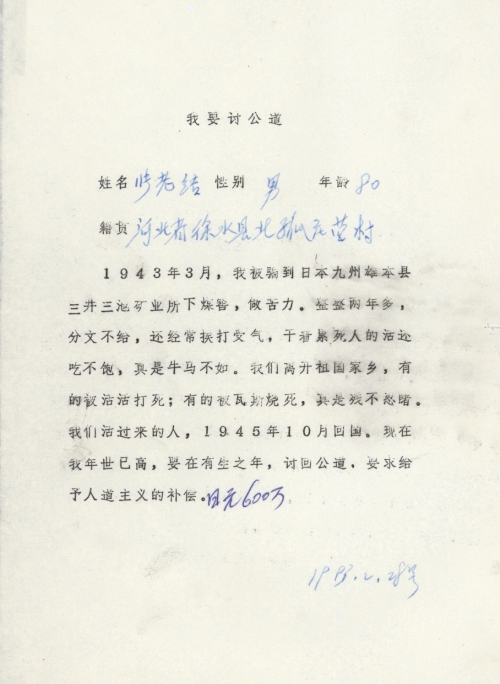 我要讨公道
姓名 老结 性别 男 年龄 80
籍贯 河北省徐水县北孤庄营村
1943年3月，我被骗到日本九州雄本县
三井三池矿业所下煤窖，做苦力。整整两年多，
分文不给，还经常挨打受气，干着累死人的活还
吃不饱，真是牛马不如。我们离开祖国家乡，有
的被活活打死；有的被瓦斯烧死，真是残不忍睹。
我们活过来的人，1945年10月回国。现在
我年世已高，要在有生之年，讨回公道，要求给
予人道主义的补偿。日元600万
2.28号